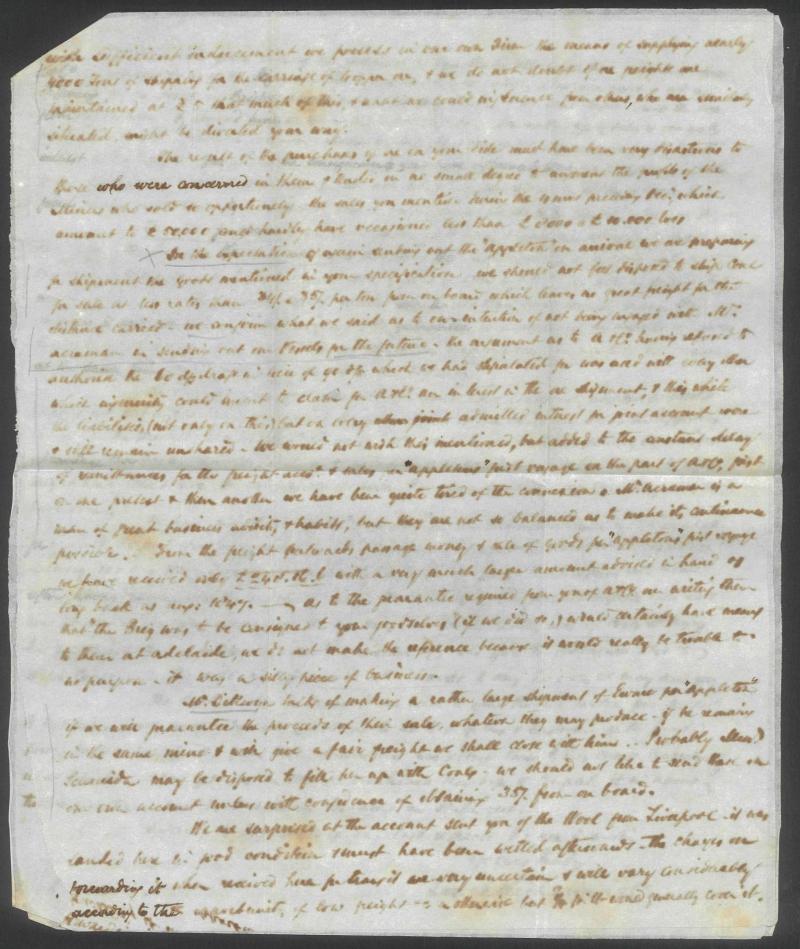 with sufficient inducement we possess in our own Firm the means of supplying nearly
4000 Tons of shipping for the carriage of Copper ore, & we do not doubt if ore freights are
maintained at £5 that much of this, & what we could influence from others, who are similarly
situated, might be directed your way.
The result of the purchases of ore on your side must have been very disastrous to
those who were concerned in them & tended in no small degree to increase the profits of the
Miners who sold so opportunely. The sales you mention during the months preceding Decr. which
amount to £50.000 could hardly have occasioned less than £8000 a £10.000 loss
In the expectation of again sending out the "Appleton" on arrival we are preparing
for shipment the Goods mentioned in your specification. We should not feel disposed to ship Coal
for sale at less rates than 35/ per ton free on board which leaves no great freight for the
distance carried. We confirm what we said as to our intention of not being engaged with Mr.
Acraman in sending out our Vessels for the future. The argument as to A & Co. having
authorized the in lieu of which we had stipulated for was used with every other
which ingenuity could invent to claim for A & Co. an interest in the ore shipment, & this while
the liabilities, (not only on this) but on every other point admitted interest for joint account were
& still remain unshared. We would not wish this mentioned, but added to the constant delay
of remittances for the freight acct. & sales on "Appletons" first voyage on the part of A & Co, first
on one pretext & then another we have been quite tired of the connexion & Mr. Acraman is a
man of great business & habits, but they are not so balanced as to make its continuance
possible. From the freight outwards passage money & sale of goods per "Appletons" first voyage
we have received only with a very much larger amount advised in hand as
long back as 1847. As to the guarantee required from you of A & Co. our writing them
that "the Brig was to be consigned to your goodselves (if we did so,) would certainly have
to them at Adelaide, we do not make the reference because it would really be trouble to
no purpose. It was a silly piece of business.
Mr. Dillwyn talks of making a rather large shipment of Eware per "Appleton"
if we will guarantee the proceeds of their sale, whatever they may produce. If he remains
in the same mind & will give a fair freight we shall close with him. Probably Messrs.
Schneider may be disposed to fill her up with Coals. We should not like to send those on
our own account unless with confidence of obtaining 35/ free on board.
We are surprised at the account sent you of the Wool from Liverpool. It was
landed here in good condition & must have been wetted afterwards. The charges on
forwarding it when received here for transit are very uncertain & will vary considerably
according to the opportunity of low freight or otherwise but would generally cover it.